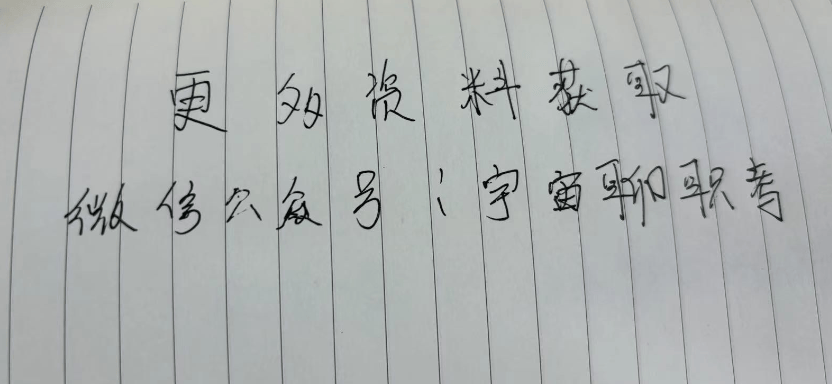 更多资料获取
微信公众号：宇宙聊职考